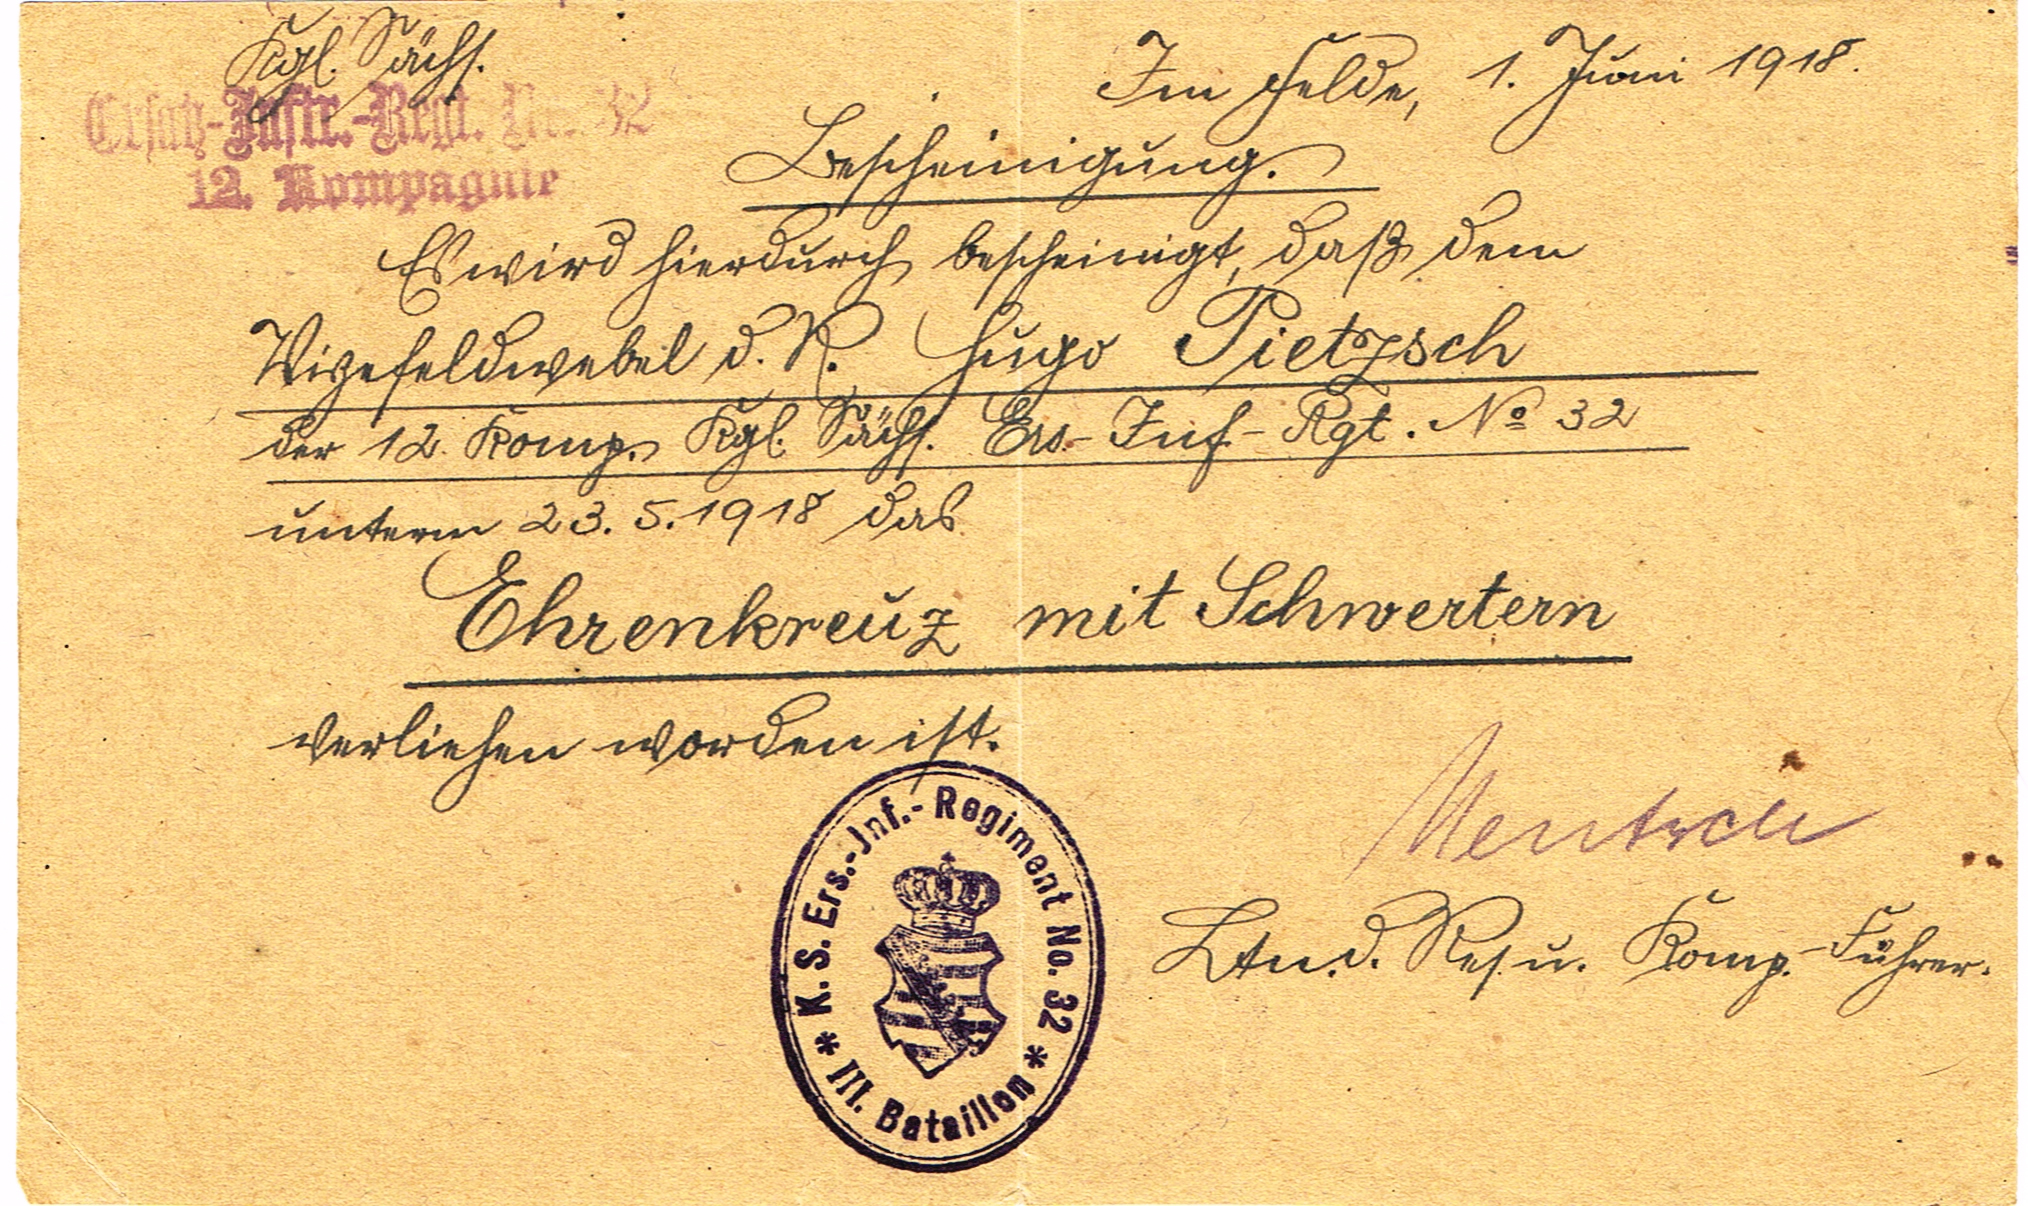 Kgl. Sächs.
Ersatz-Inftr.-Regt. Nr. 32
12. Kompagnie
Im Felde, 1. Juni 1918.
Bescheinigung.
Es wird hierdurch bescheinigt, daß dem
Vizefeldwebel d. R. Hugo Pietzsch
der 12. Komp. Kgl. Sächs. Ers.-Inf-Rgt. No 32
unterm 23.5.1918 das
Ehrenkreuz mit Schwertern
verliehen worden ist.
K. S. Ers.-Inf.-Regiment No. 32
* III. Bataillon *
Ltn. d. Res. u. Komp.-Führer.